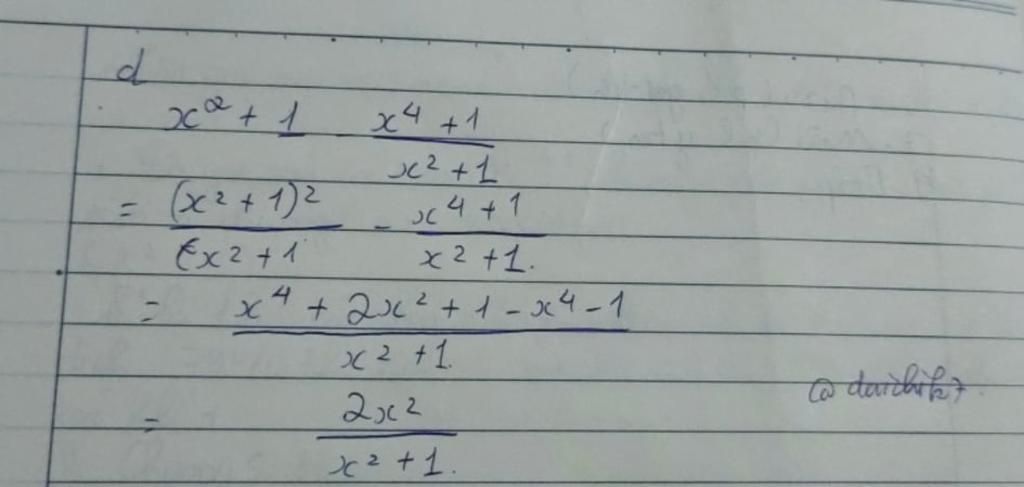 d
x² + 1 - (x⁴ + 1)/(x² + 1)
= (x² + 1)²/(x² + 1) - (x⁴ + 1)/(x² + 1.)
= (x⁴ + 2x² + 1 - x⁴ - 1)/(x² + 1.)
= 2x²/(x² + 1.)